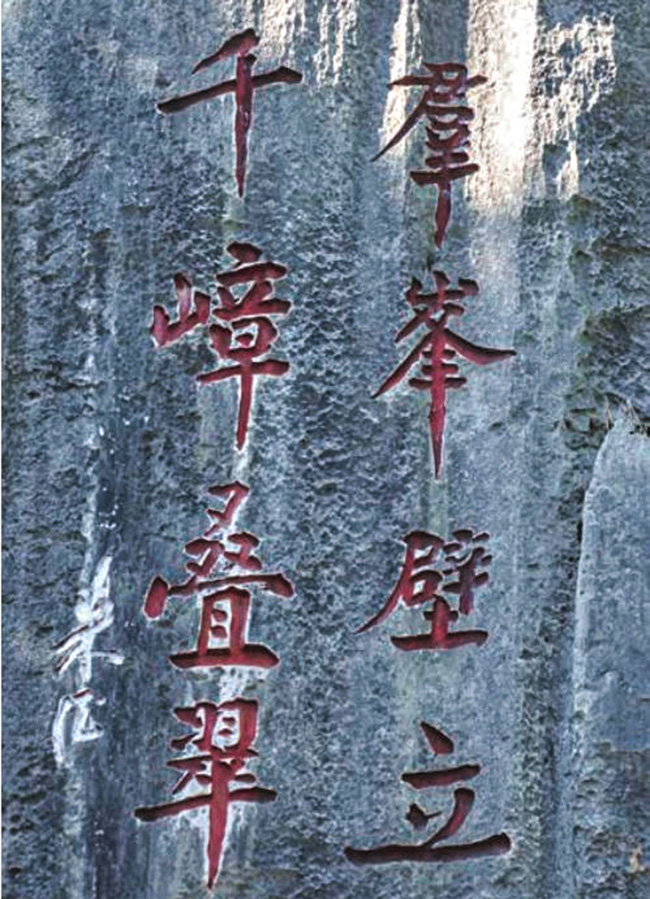 羣峯壁立
千嶂叠翠